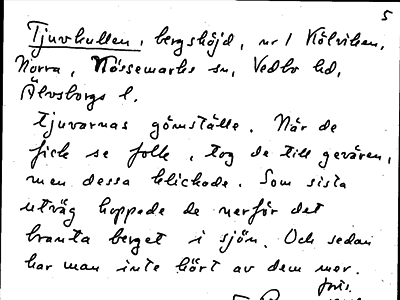 5
Tjuvkullen, bergshöjd, nr 1 Kölviken,
Norra, Nössemarks sn, Vedbo hd,
Älvsborgs l.
Tjuvarnas gömställe. När de
fick se folk, tog de till gevären,
men dessa klickade. Som sista
utväg hoppade de nerför det
branta berget i sjön. Och sedan
har man inte hört av dem mer.
forts.